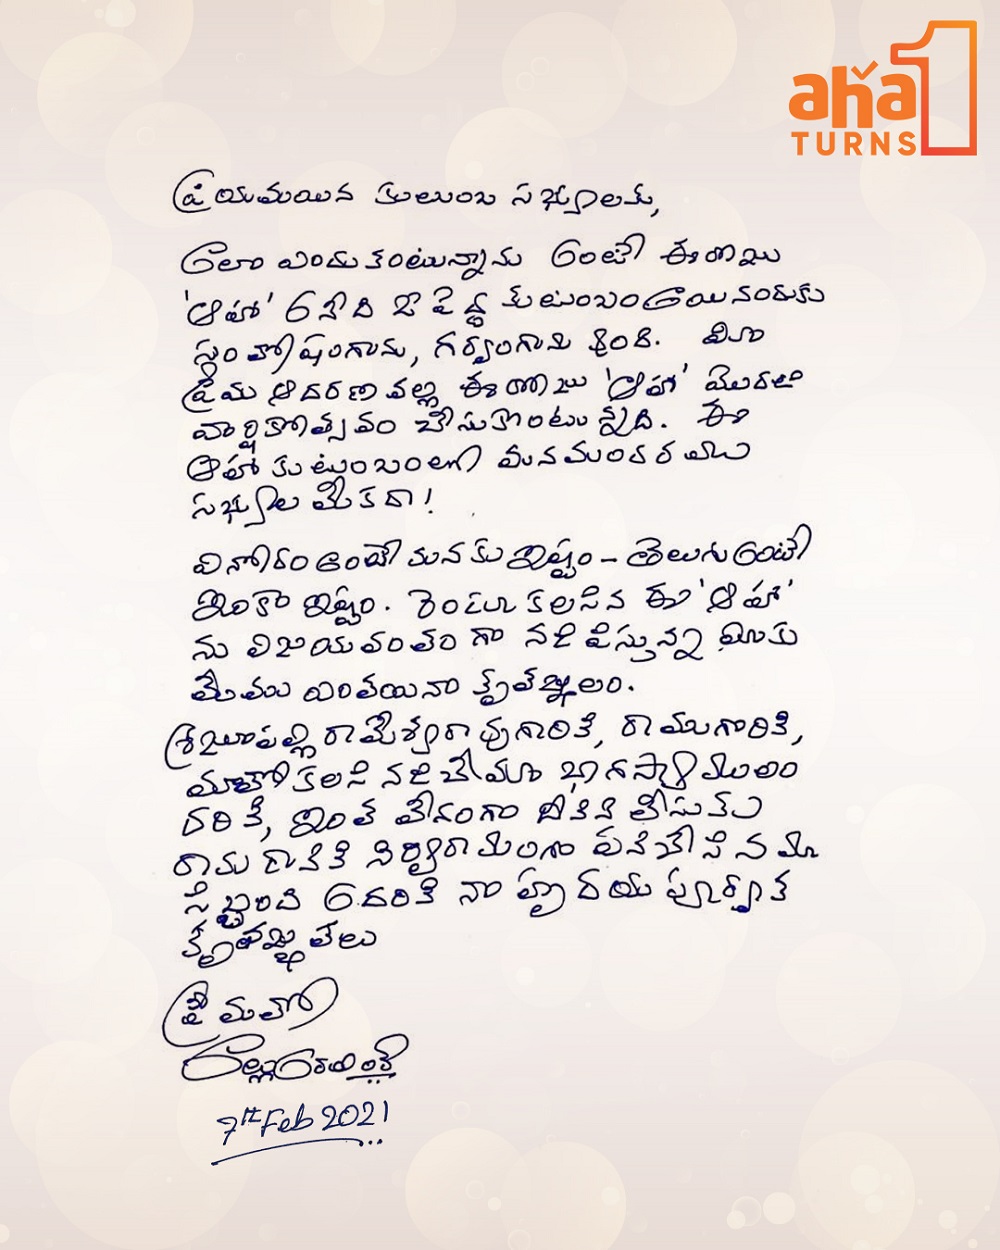 aha
TURNS 1
ప్రియమయిన కుటుంబ సభ్యులకు,
అలా ఎందుకంటున్నాను అంటే ఈరోజు
'ఆహా' అనేది ఓ పెద్ద కుటుంబం అయినందుకు
సంతోషంగాను, గర్వంగాను ఉంది. మీ
ప్రేమ ఆదరణ వల్ల ఈరోజు 'ఆహా' మొదటి
వార్షికోత్సవం చేసుకొంటున్నది. ఈ
ఆహా కుటుంబంలో మనమందరమూ
సభ్యులమే కదా!
వినోదం అంటే మనకు ఇష్టం - తెలుగు అంటే
ఇంకా ఇష్టం. రెండూ కలసిన ఈ 'ఆహా'
ను విజయవంతంగా నడిపిస్తున్న మీకు
మేము ఎంతయినా కృతజ్ఞులం.
శ్రీ జూపల్లి రామేశ్వరరావు గారికి, రాము గారికి,
మాతో కలసి నడిచే మా భాగస్వాములం
దరికీ, ఇంత వేగంగా దీనిని తీసుకు
రావడానికి నిర్విరామంగా పనిచేసిన మా
సిబ్బంది అందరికీ నా హృదయ పూర్వక
కృతజ్ఞతలు
ప్రేమతో
అల్లు అరవింద్
7th Feb 2021